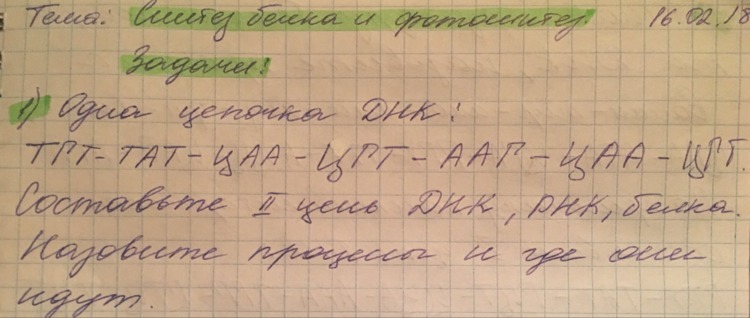 Тема: Синтез белка и фотосинтез. 16.02.18
Задачи:
1) Одна цепочка ДНК:
ТГТ-ТАТ-ЦАА-ЦГТ-ААГ-ЦАА-ЦГТ.
Составьте II цепь ДНК, РНК, белка.
Назовите процессы и где они
идут.